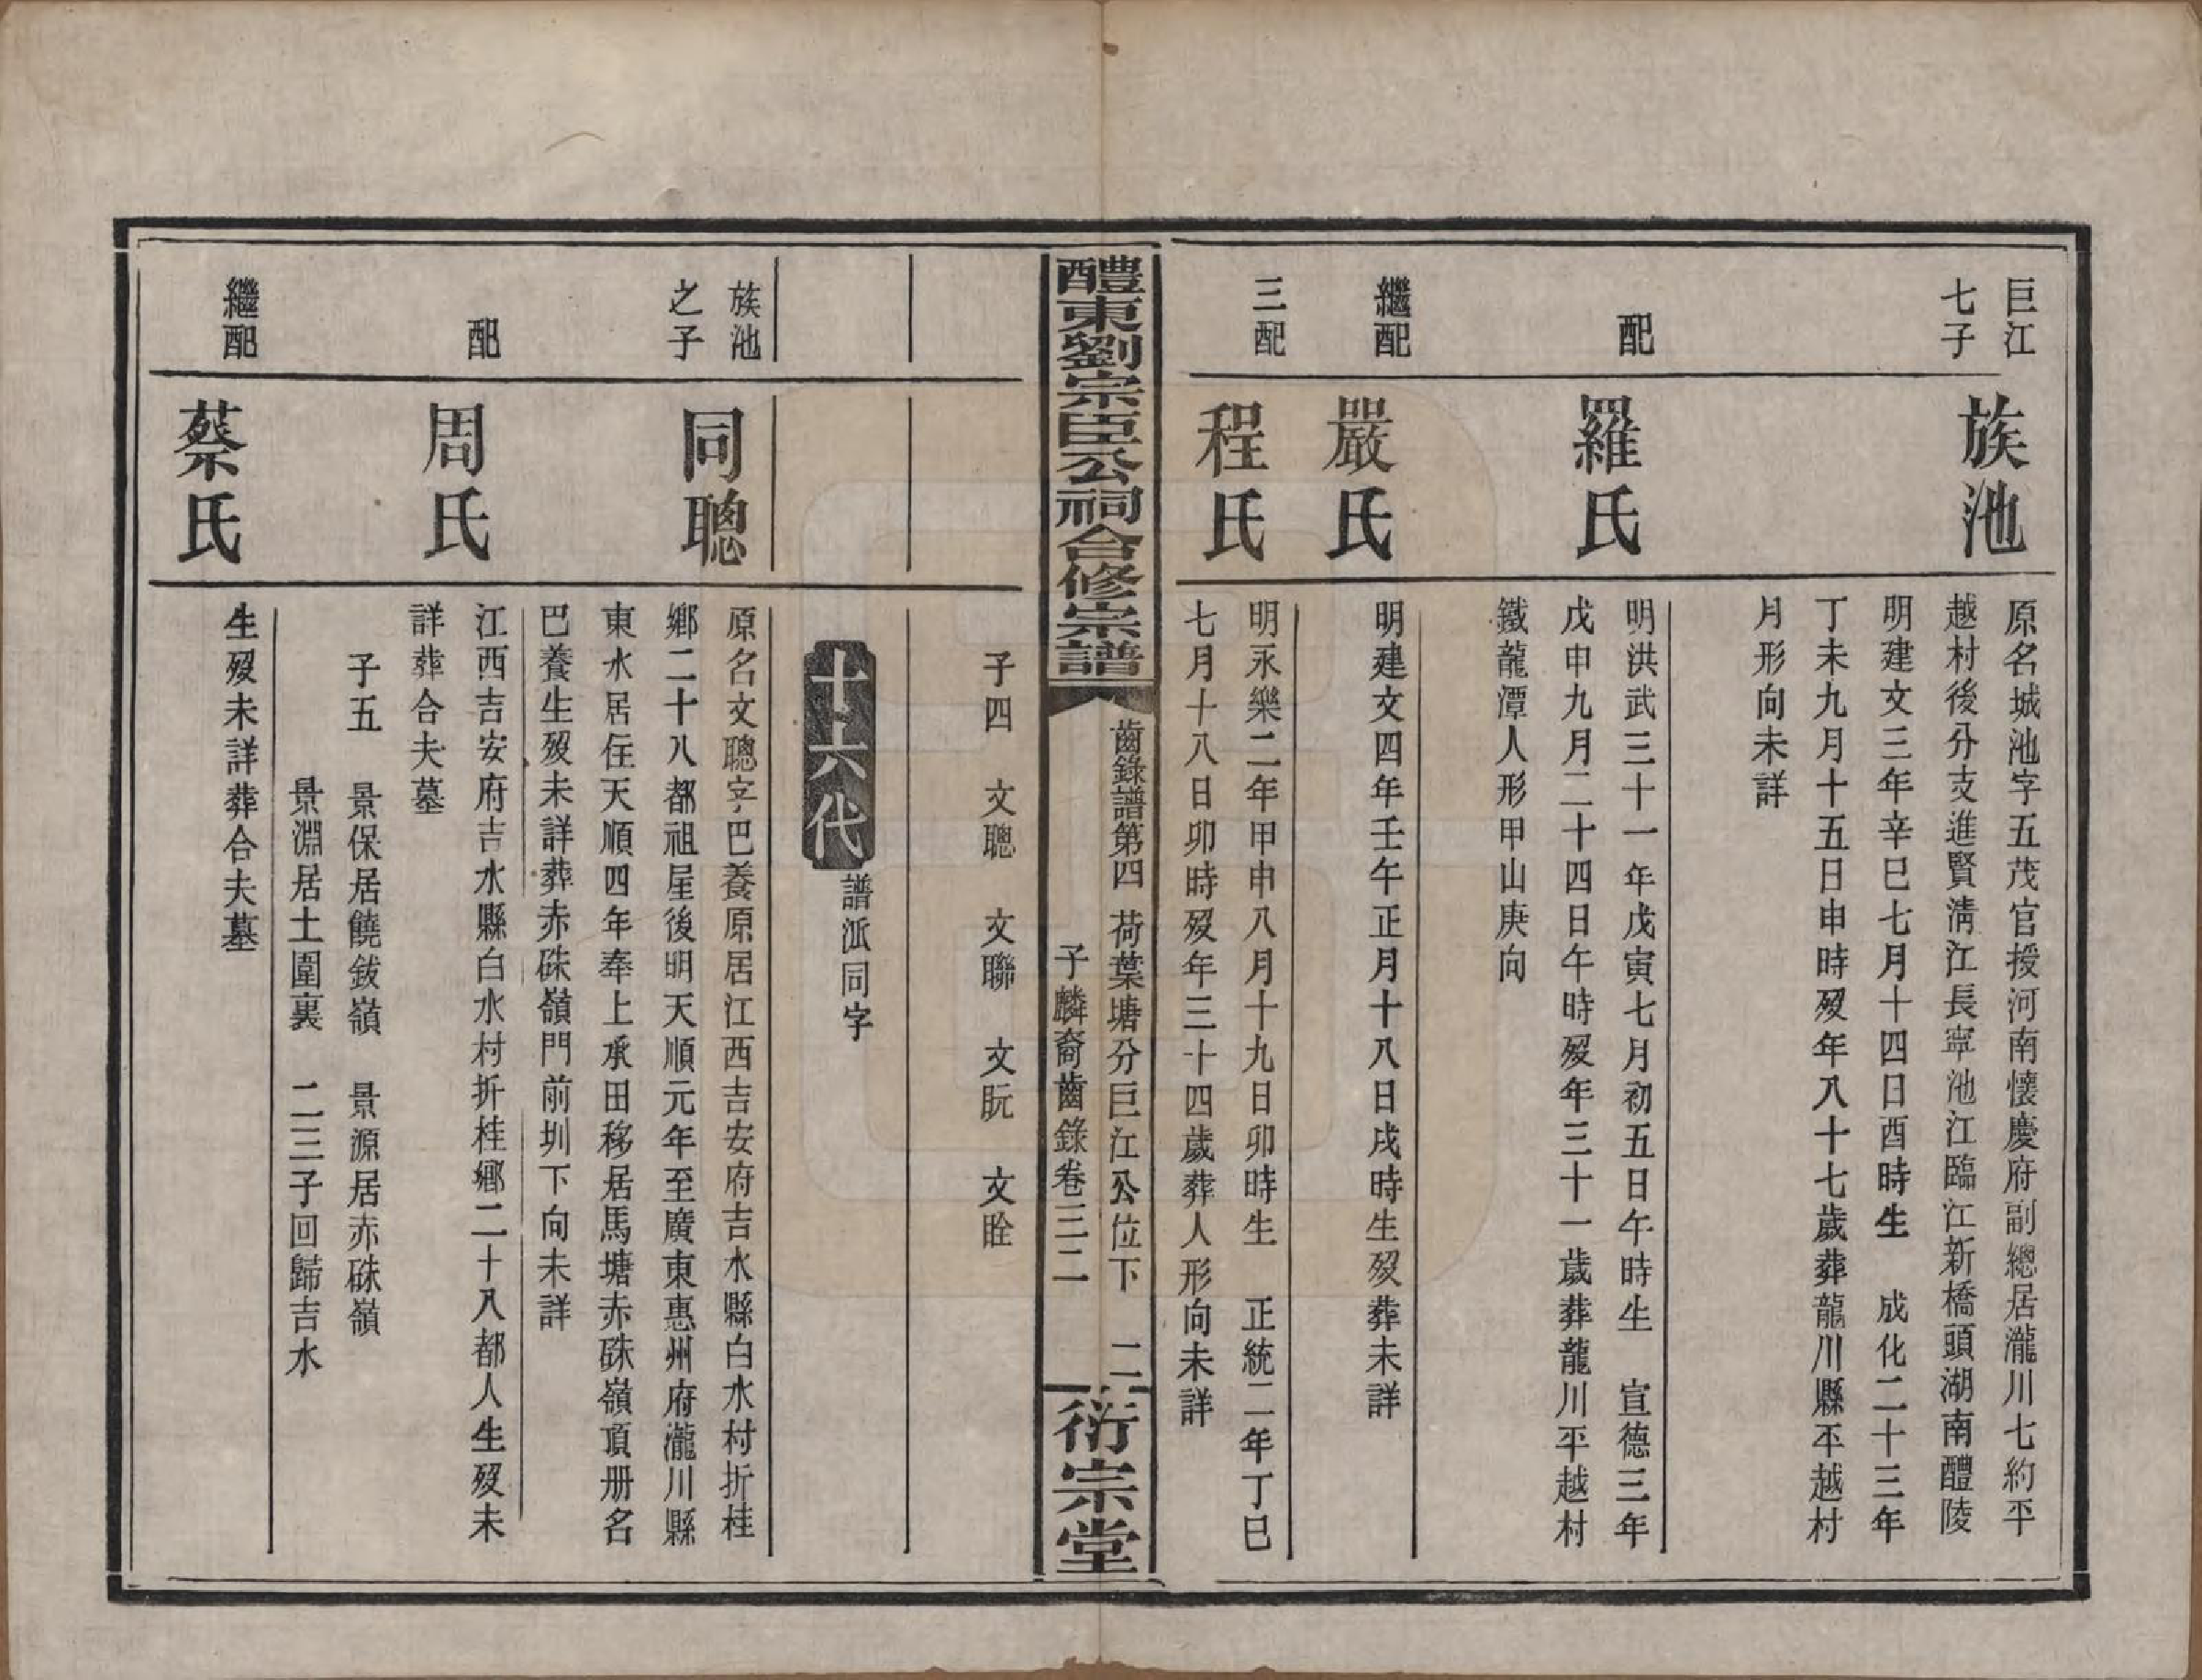 巨江
七子
族池
原名城池字五茂官授河南懷慶府副總居瀧川七約平
越村後分支進賢淸江長寧池江臨江新橋頭湖南醴陵
明建文三年辛巳七月十四日酉時生　成化二十三年
丁未九月十五日申時歿年八十七歲葬龍川縣平越村
月形向未詳
配
羅氏
明洪武三十一年戊寅七月初五日午時生　宣德三年
戊申九月二十四日午時歿年三十一歲葬龍川平越村
鐵龍潭人形甲山庚向
繼配
嚴氏
明建文四年壬午正月十八日戌時生歿葬未詳
三配
程氏
明永樂二年甲申八月十九日卯時生　正統二年丁巳
七月十八日卯時歿年三十四歲葬人形向未詳
醴東劉宗臣公祠合修宗譜
齒錄譜第四　荷葉塘分巨江公位下　二
子麟裔齒錄卷三二
衍宗堂
子四　文聰　文聯　文朊　文睻
十六代
譜派同字
族池
之子
同聰
原名文聰字巴養原居江西吉安府吉水縣白水村折桂
鄉二十八都祖屋後明天順元年至廣東惠州府瀧川縣
東水居住天順四年奉上承田移居馬塘赤硃嶺頂册名
巴養生歿未詳葬赤硃嶺門前圳下向未詳
配
周氏
江西吉安府吉水縣白水村折桂鄉二十八都人生歿未
詳葬合夫墓
子五　景保居饒鈸嶺　景源居赤硃嶺
景淵居土圍裏　二三子回歸吉水
繼配
蔡氏
生歿未詳葬合夫墓